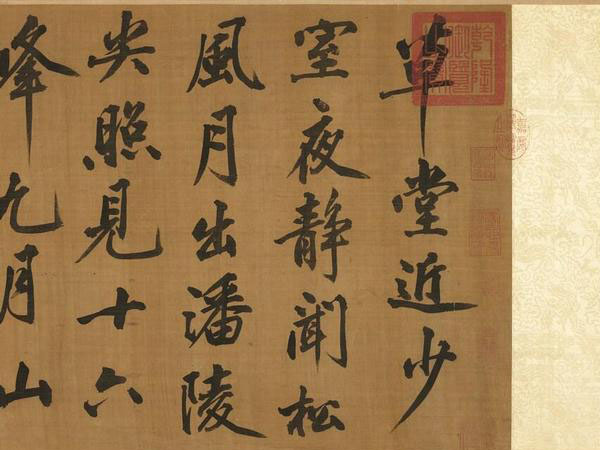 草堂近少
室夜靜聞松
風月出潘陵
尖照見十六
峰九月山